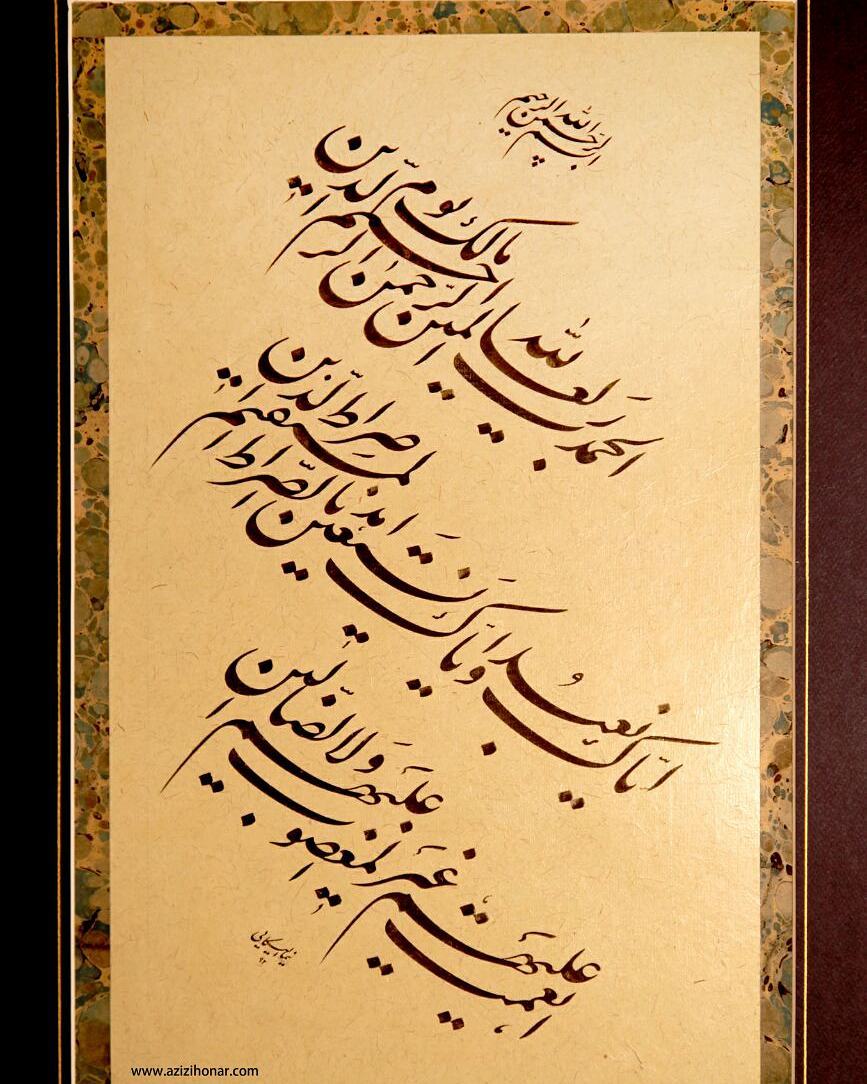 بسم الله الرحمن الرحیم
الحمد لله رب العالمین الرحمن الرحیم مالک یوم الدین
ایاک نعبد و ایاک نستعین اهدنا الصراط المستقیم صراط الذین
انعمت علیهم غیر المغضوب علیهم ولا الضالین
www.azizihonar.com